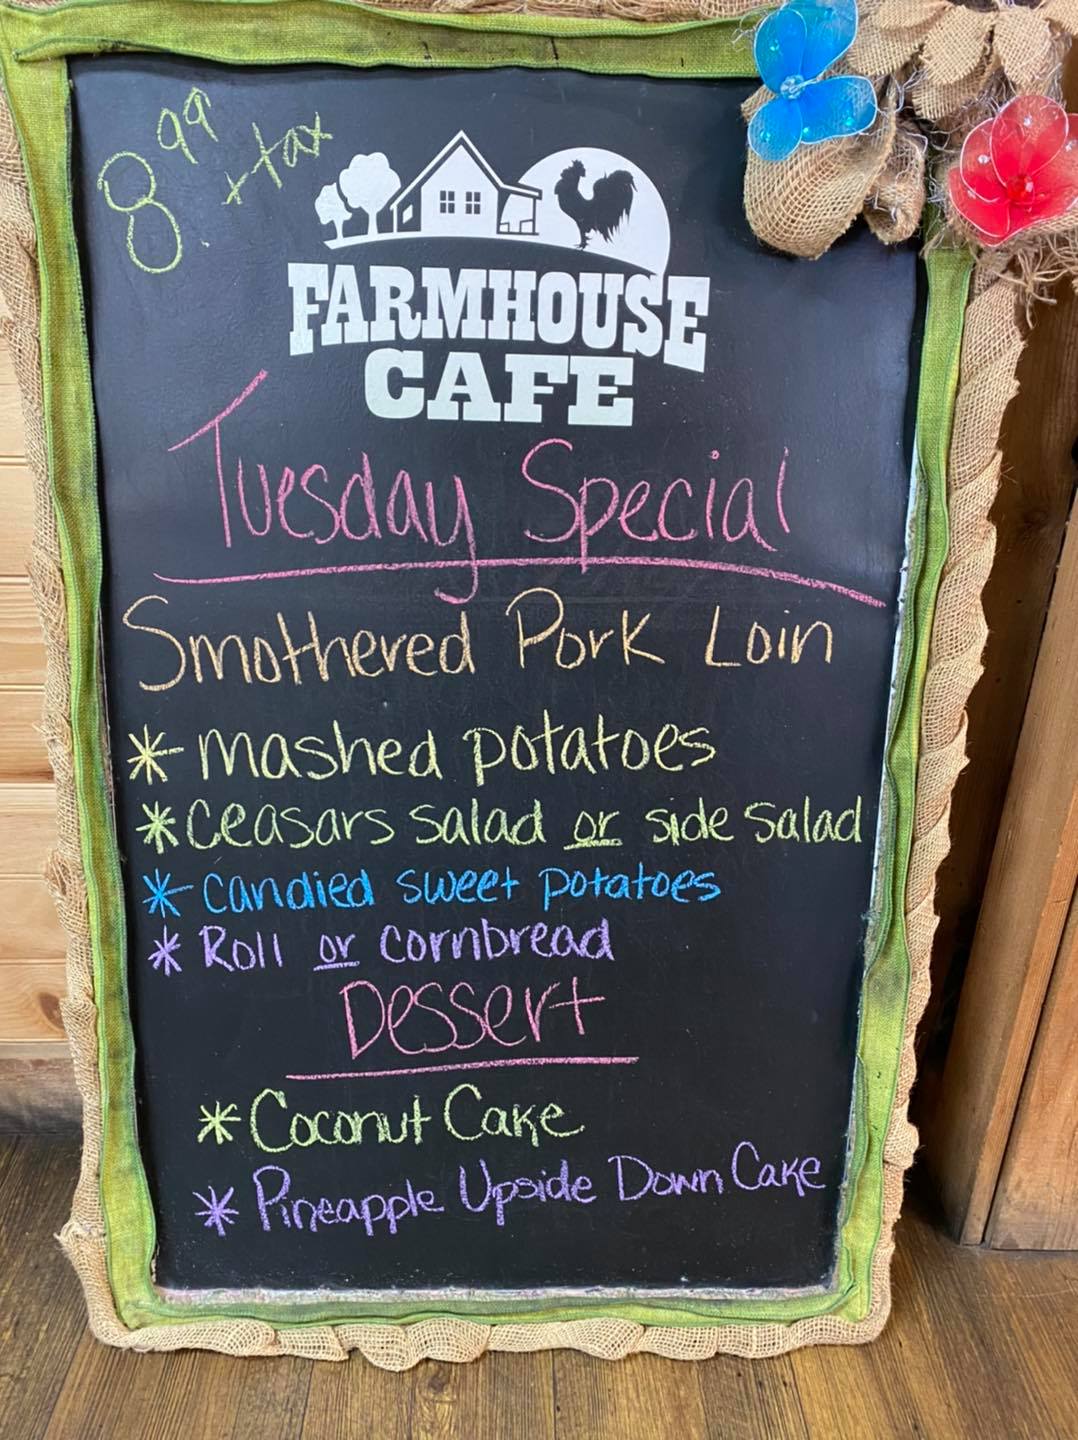 8.99 + tax
FARMHOUSE
CAFE
Tuesday Special
Smothered Pork Loin
* mashed potatoes
* Ceasars salad or side salad
* candied sweet potatoes
* Roll or cornbread
Dessert
* Coconut Cake
* Pineapple Upside Down Cake